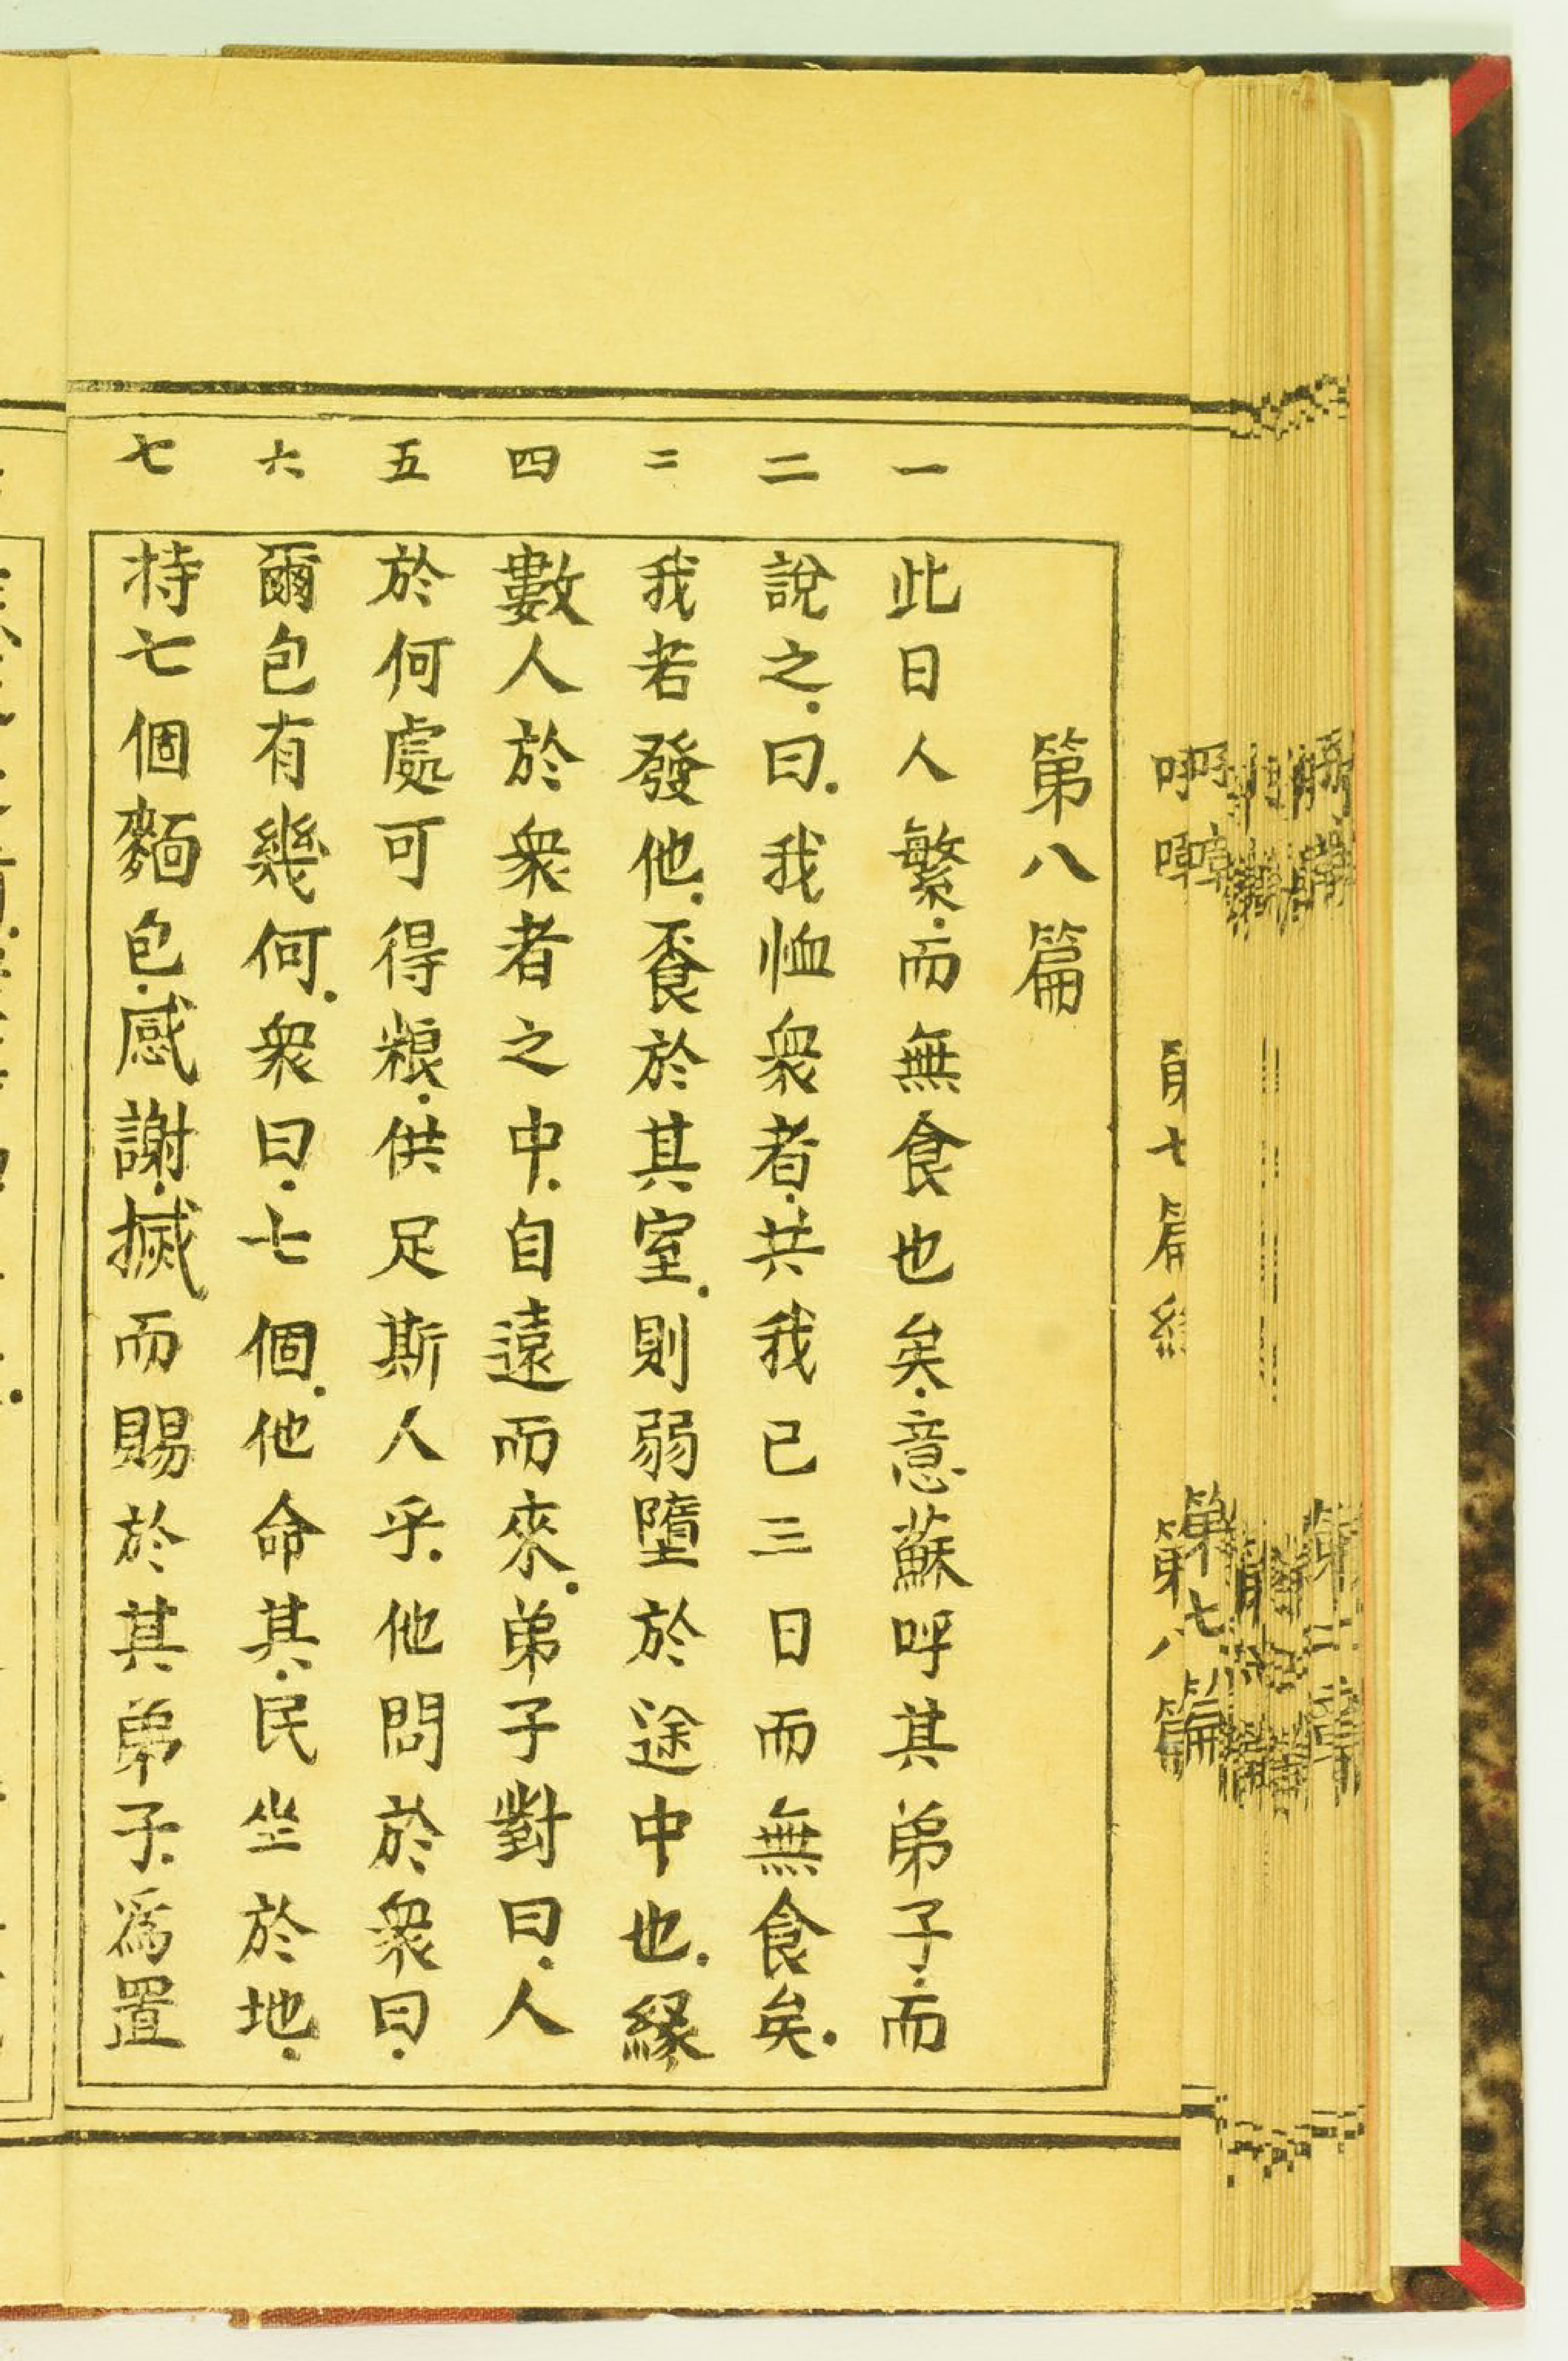 第八篇
一 此日人繁.而無食也矣.意蘇呼其弟子.而
二 說之.曰.我恤衆者.共我已三日而無食矣.
二 我若發他.飡於其室.則弱墮於途中也.緣
四 數人於衆者之中.自遠而來.弟子對曰.人
五 於何處可得粮.供足斯人乎.他問於衆曰.
六 爾包有幾何.衆曰.七個.他命其.民坐於地.
七 持七個麵包.感謝.搣而賜於其弟子.爲置